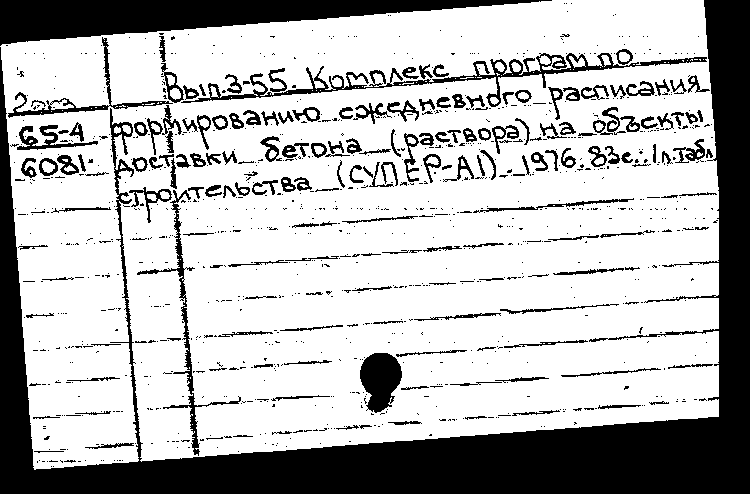 Вып.3-55. Комплекс програм по
2 экз
65-4 формированию ежедневного расписания
6081. доставки бетона (раствора) на объекты
строительства (СУПЕР-А1). 1976. 83с. 1 л. табл